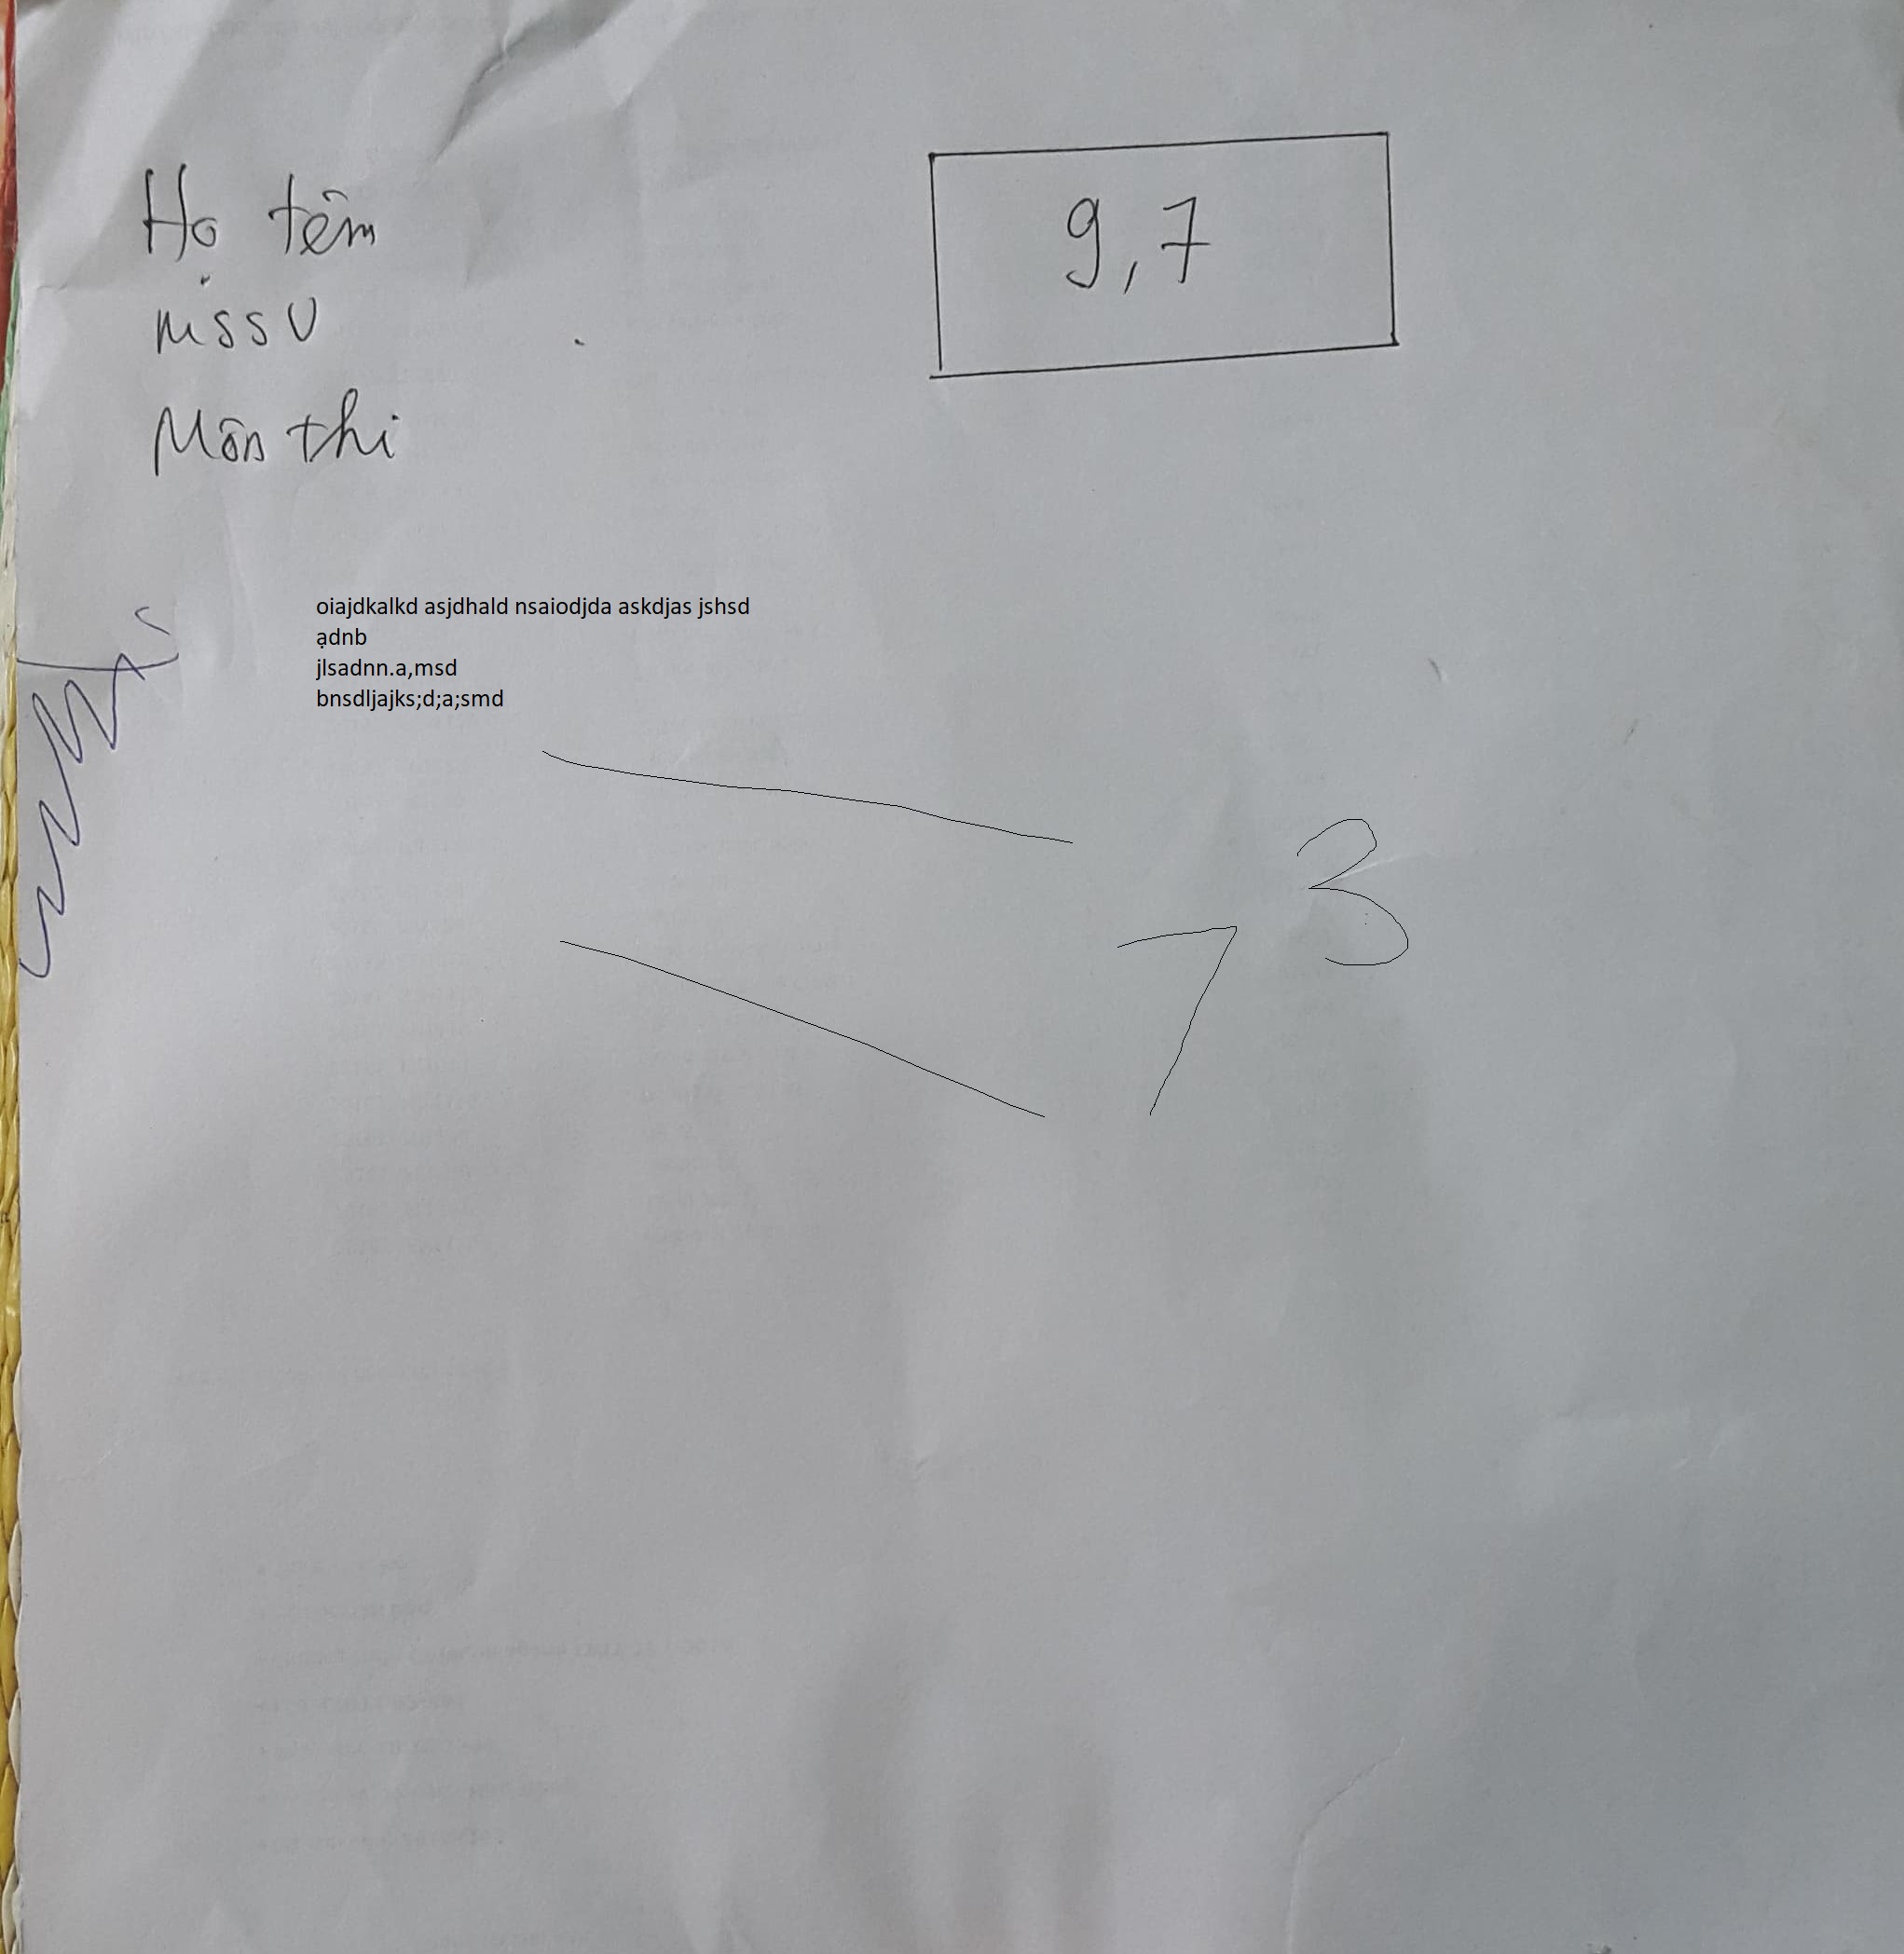 Họ tên
9,7
MSSV
Môn thi
oiajdkalkd asjdhald nsaiodjda askdjas jshsd
ạdnb
jlsadnn.a,msd
bnsdljajks;d;a;smd
3
7